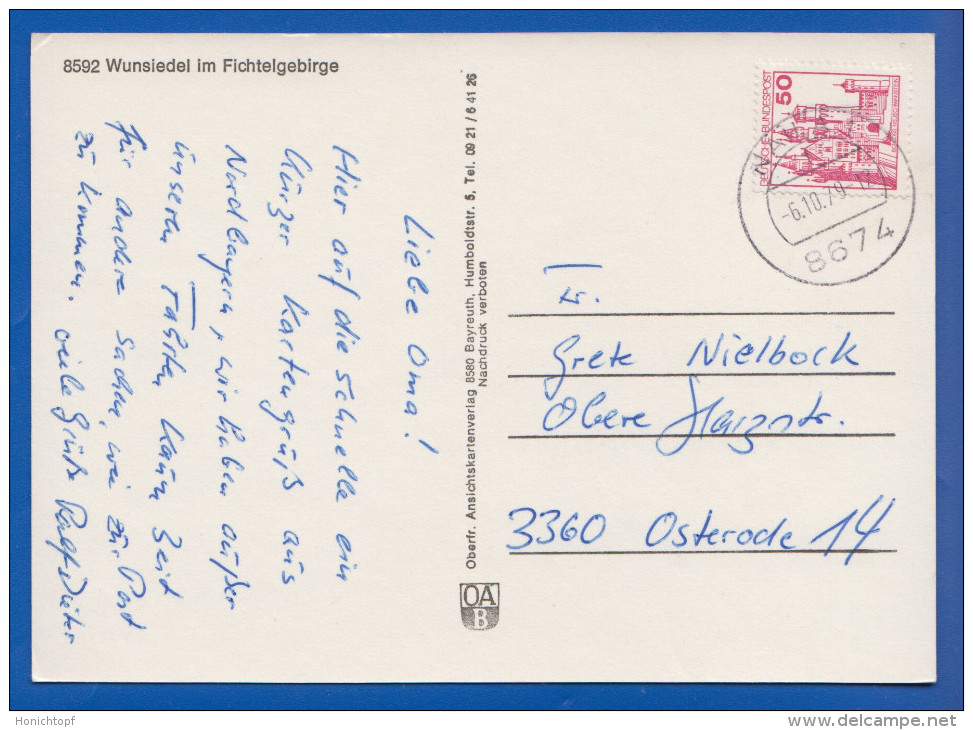 8592 Wunsiedel im Fichtelgebirge
Liebe Oma!
Hier auf die schnelle ein
kurzer Kartengruß aus
Nordbayern, wir haben außer
unseren Fahrten kaum Zeit
für andere Sachen, wie zur Post
zu kommen. viele Grüße Ralf-Dieter
Oberfr. Ansichtskartenverlag 8580 Bayreuth, Humboldtstr. 5, Tel. 09 21 / 6 41 26
Nachdruck verboten
OA
B
DEUTSCHE BUNDESPOST
50
-6.10.79-17
8674
Fr.
Grete Nielbock
Obere Harzstr.
3360 Osterode 14
Honichtopf
delcampe.net